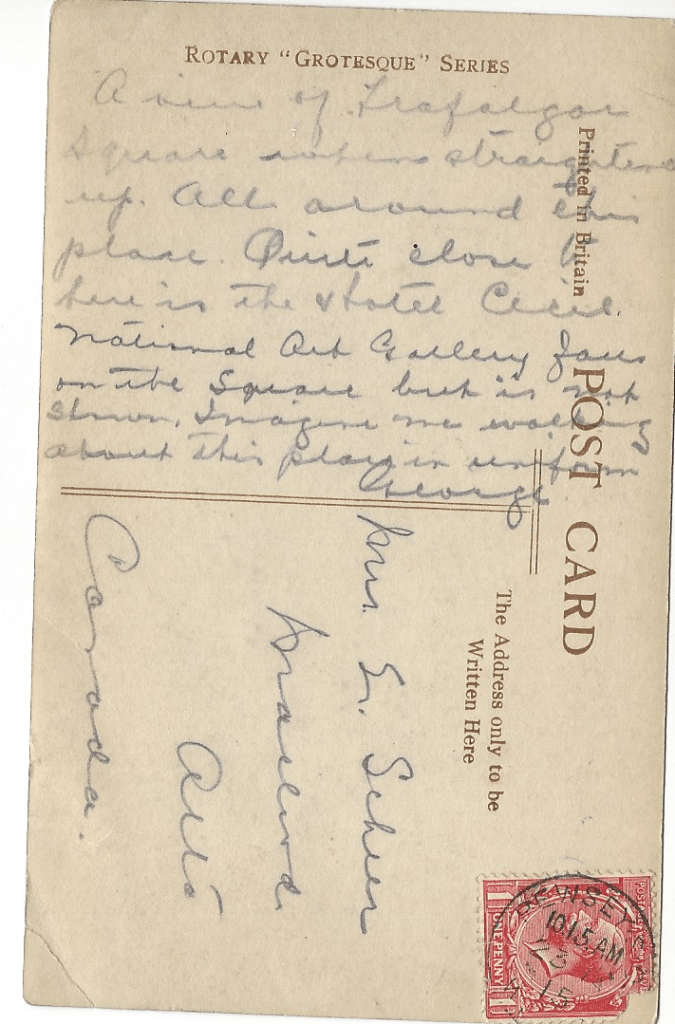 ROTARY "GROTESQUE" SERIES
A view of Trafalgar
Square when straightened
up. All around this
place. Quite close to
here is the Hotel Cecil.
National Art Gallery faces
on the Square but is not
shown. Imagine me walking
about this place in uniform
George
Printed in Britain
POST CARD
The Address only to be
Written Here
Mrs. E. Scheer
Alta
Canada.
POSTAGE
ONE PENNY
10.15 AM
23
15